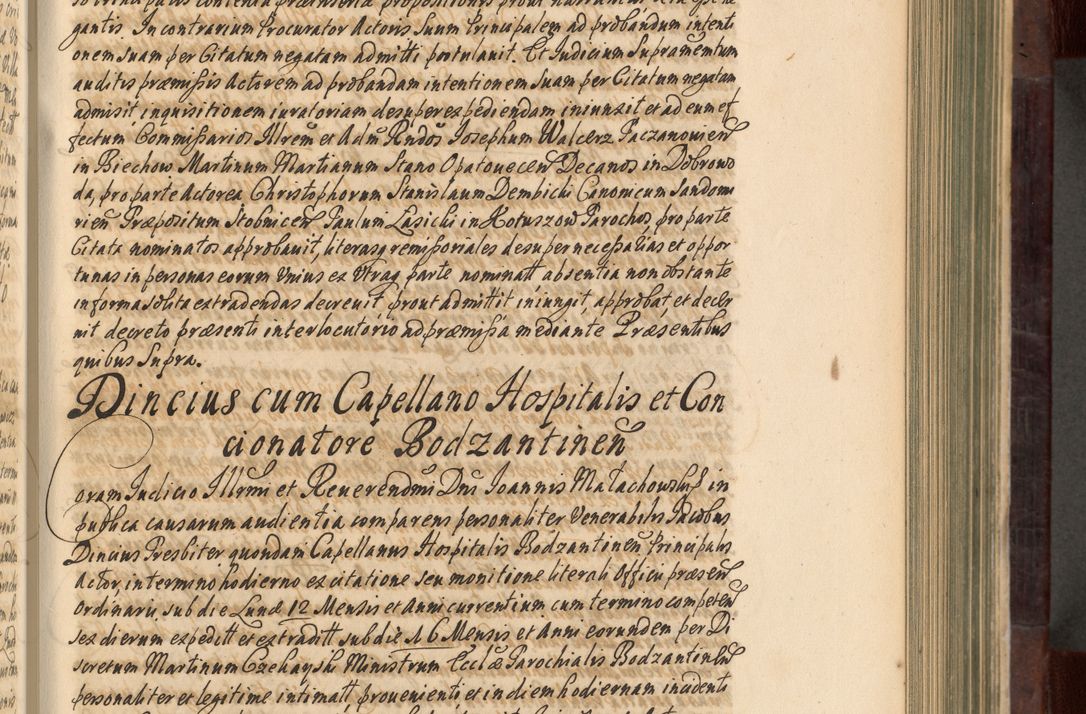 gantis. In contrarium Procurator Actoris Suum Principalem ad probandum intenti
onem suam per Citatum negatam admitti postulavit. Et Iudicium Supramentum
auditis præmissis Actorem ad probandam intentionem Suam per Citatum negatam
admisit inquisitionem iuratoriam desuper expediendam iniunxit et ad eum ef
fectum Commissarios Illrem et Adm Rndos Iosephum Walcerz Paczanovien
in Biechow Martinum Martianum Stano Opatovecen Decanos in Dobrowo
da, pro parte Actorea Christophorum Stanislaum Dembicki Canonicum Sandomi
rien Præpositum Stobnicen Paulum Lasicki in Kotuszow Parochos, pro parte
Citata nominatos approbavit, literasq remissoriales desuper necessarias et oppor
tunas in personas eorum Unius ex Utraq parte nominatt absentia non obstante
in forma solita extradendas decrevit prout admittit iniungit, approbat, et decer
nit decreto præsenti interlocutorio ad præmissa mediante Præsentibus
quibus Supra.
Dincius cum Capellano Hospitalis et Con
cionatore Bodzantinen
Coram Iudicio Illrmi et Reverendmi Dni Ioannis Małachowski in
publica causarum audientia comparens personaliter Venerabilis Iacobus
Dincius Presbiter quondam Capellanus Hospitalis Bodzantinen Principalis
Actor, in termino hodierno ex citatione seu monitione literali Officii præsen
Ordinarii sub die Lunæ 12 Mensis et Anni currentium cum termino competen
sex dierum expeditt et extraditt sub die 16 Mensis et Anni eorundem per Di
scretum Martinum Czekayski Ministrum Ecclæ Parochialis Bodzantinen
personaliter et legitime intimatt provenienti et in diem hodiernam incidenti